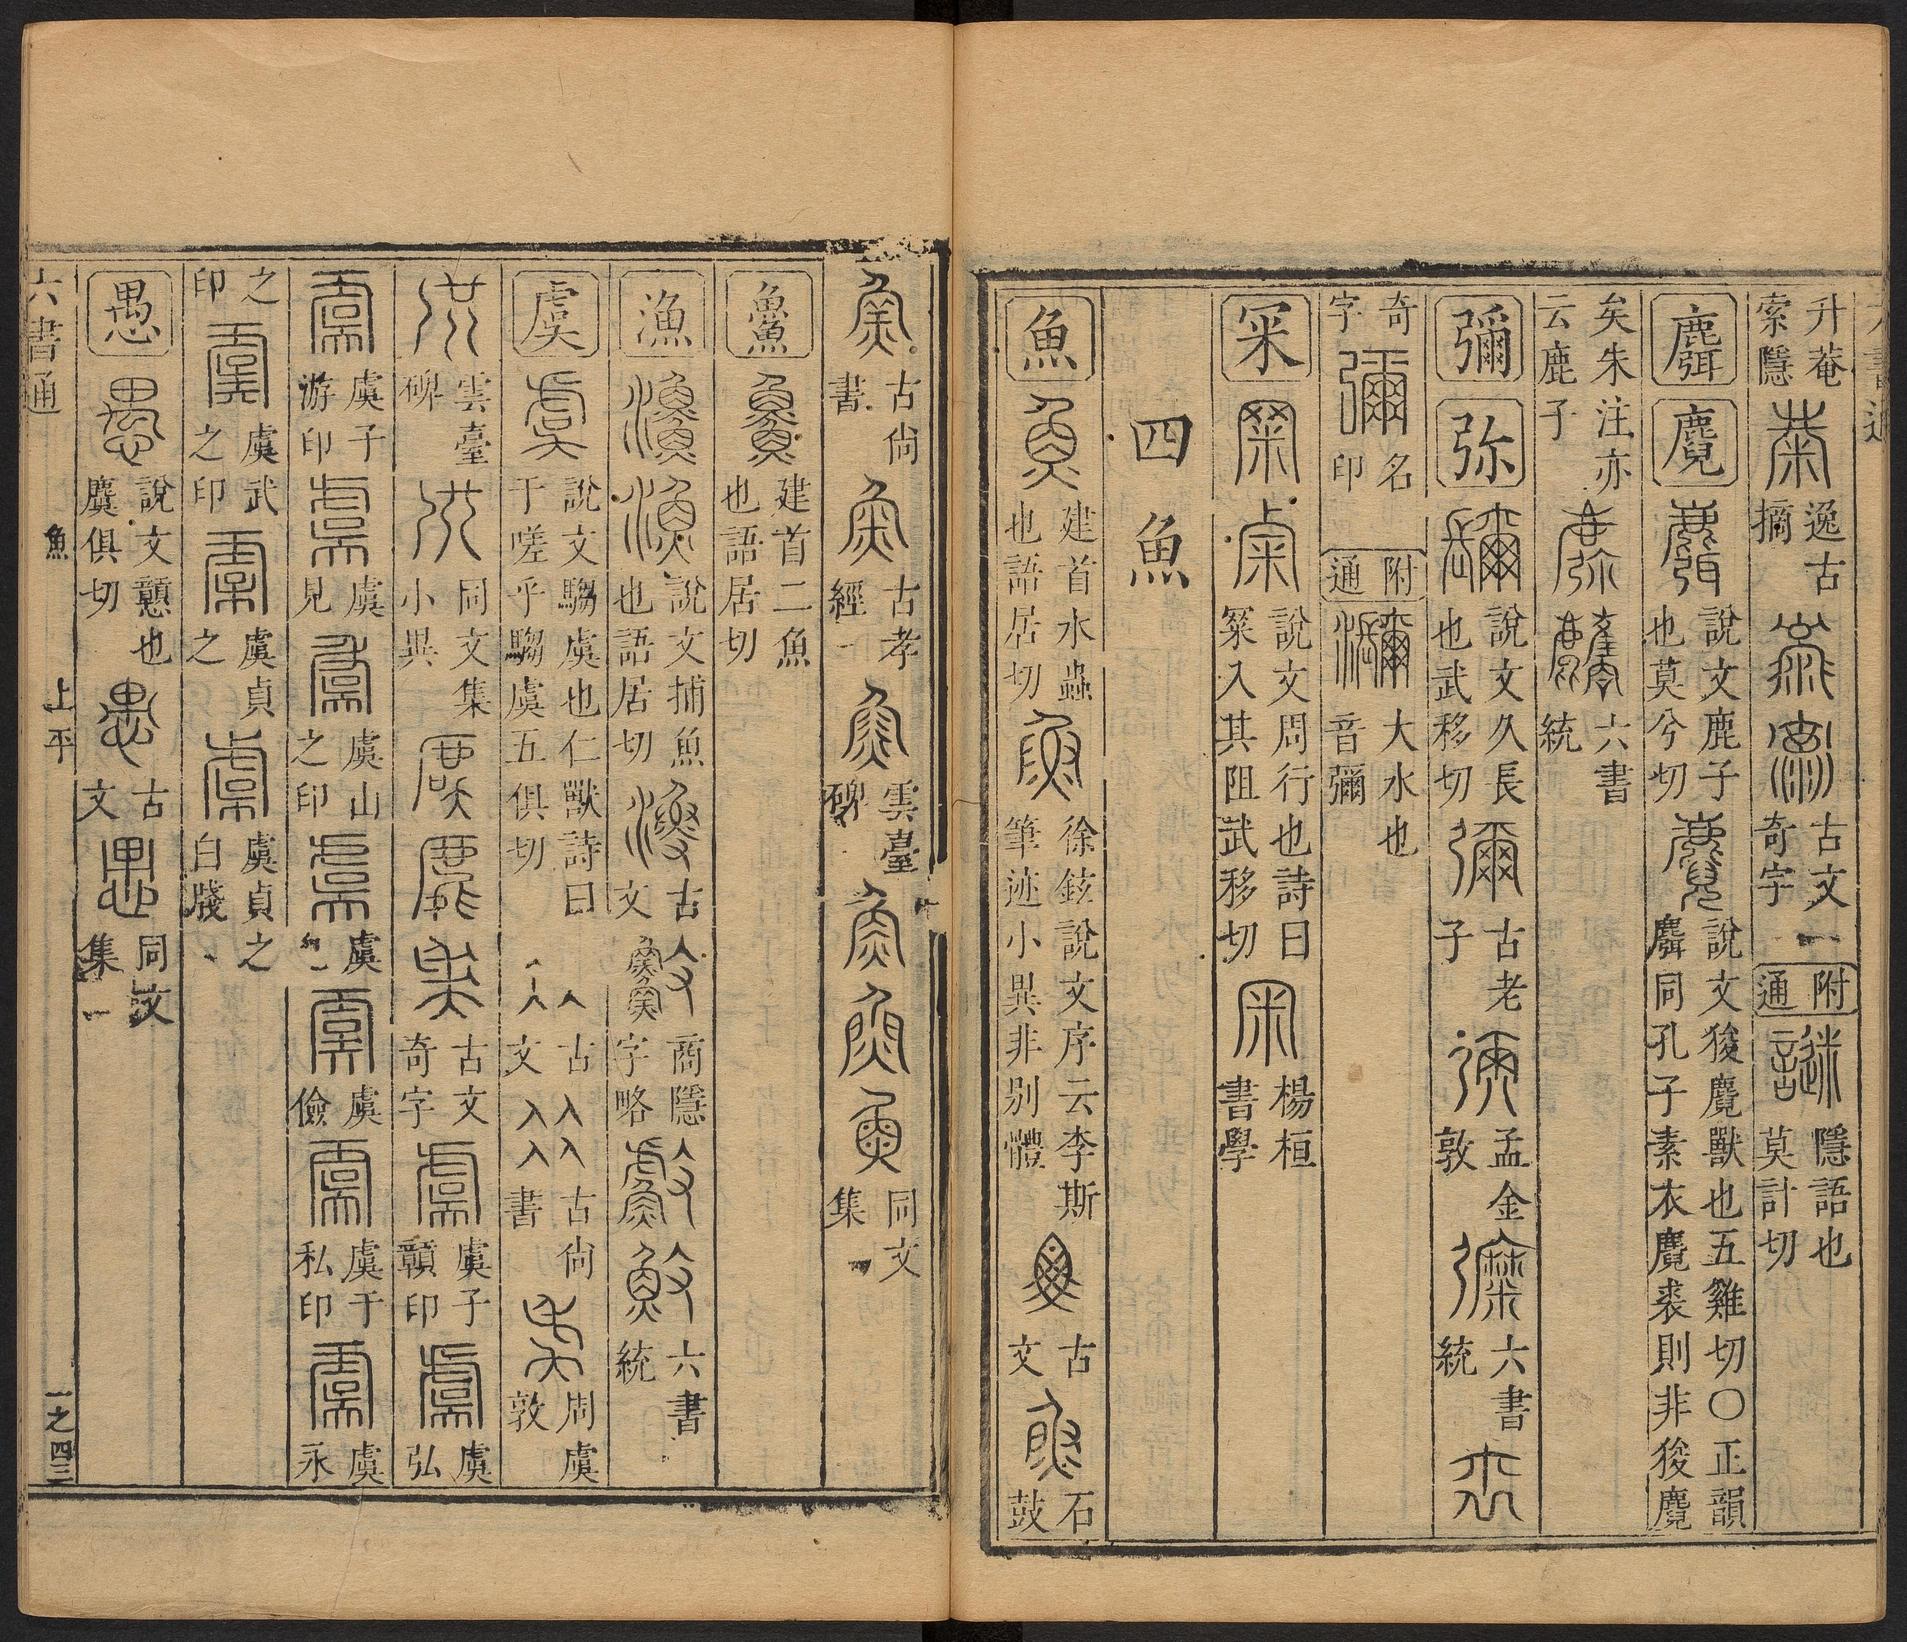 升菴索隱 逸古摘 古文奇字一 附通 隱語也莫計切
麛 麑 說文鹿子也莫兮切 說文狻麑獸也五雞切〇正韻麛同孔子素衣麑裘則非狻麑
矣朱注亦云鹿子 六書統
彌 弥 說文久長也武移切 古老子 孟金敦 六書統
奇字 名印 附通 大水也音彌
冞 說文周行也詩曰冞入其阻武移切 楊桓書學
四魚
魚 建首水蟲也語居切 徐鉉說文序云李斯筆迹小異非別體 古文 石鼓
古尙書 古孝經 雲臺碑 同文集
䲆 建首二魚也語居切
漁 說文捕魚也語居切 古文 商隱字略 六書統
虞 說文騶虞也仁獸詩曰于嗟乎騶虞五俱切 古文 古尙書 周虞敦
雲臺碑 同文集小異 古文奇字 虞子顐印 虞弘
虞子游印 虞見 虞山之印 虞 虞儉 虞于私印 虞永
之印 虞武之印 虞貞之 虞貞之白牋
愚 說文戇也麌俱切 古文 同文集
六書通 魚 上平 一之四三